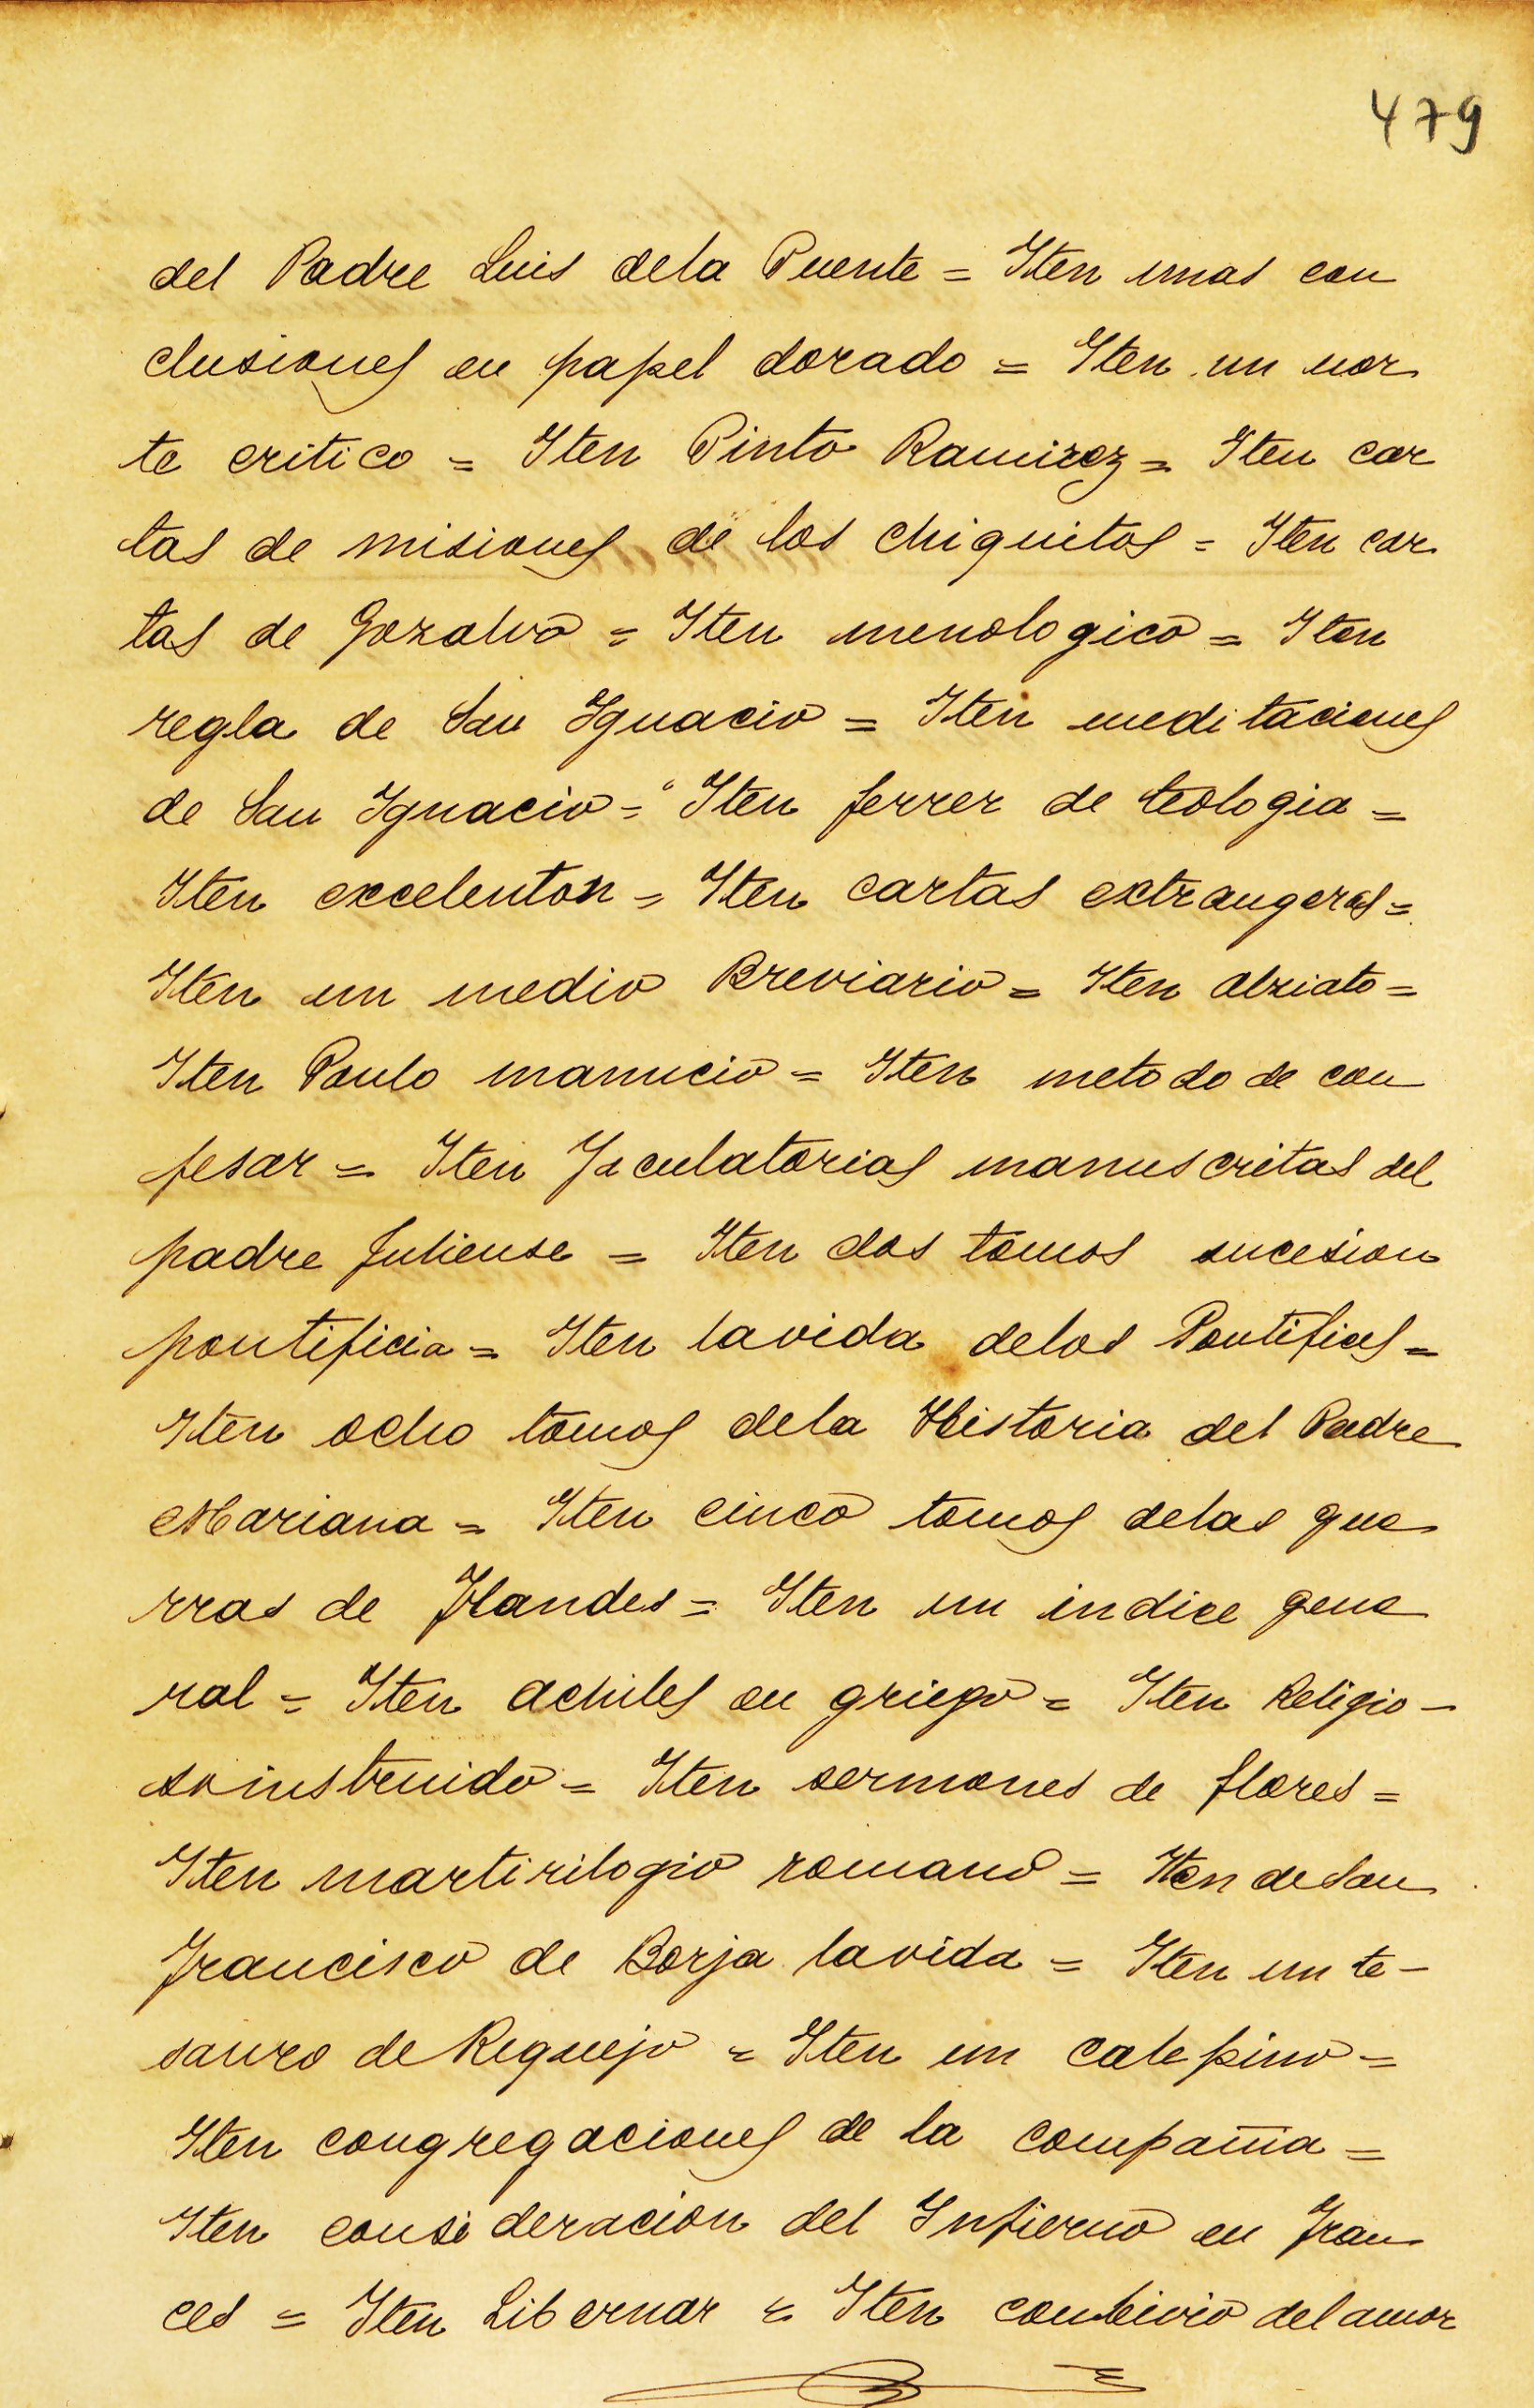 479
del Padre Luis dela Puente = Iten unas con
clusiones en papel dorado = Iten un nor
te critico = Iten Pinto Ramirez = Iten car
tas de misiones de los chiquitos = Iten car
tas de Gozalvo = Iten menologico = Iten
regla de San Ignacio = Iten meditaciones
de San Ignacio = Iten ferrer de teologia =
Iten excelenton = Iten cartas extrangeras =
Iten un medio Breviario = Iten alziato =
Iten Paulo manucio = Iten metodo de con
fesar = Iten Jaculatorias manuscritas del
padre Juliense = Iten dos tomos sucesion
pontificia = Iten lavida delos Pontifices =
Iten ocho tomos dela Historia del Padre
Mariana = Iten cinco tomos delas gue
rras de Flandes = Iten un indice gene
ral = Iten achiles en griego = Iten Religio-
so instruido = Iten sermones de flores =
Iten martirilogio romano = Iten de San
Francisco de Borja lavida = Iten un te-
sauro de Requejo = Iten un calepino =
Iten congregaciones de la compañia =
Iten consideracion del Infierno en Fran
ces = Iten Libernar = Iten conbivio del amor